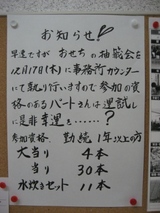 お知らせ!!
早速ですが おせちの抽籤会を
12月17日(木)に事務所カウンター
にて執り行いますので参加の資
格のあるパートさんは運試し
に是非幸運を……?
参加資格 勤続1年以上の方
大当り 4本
当り 30本
水炊きセット 11本